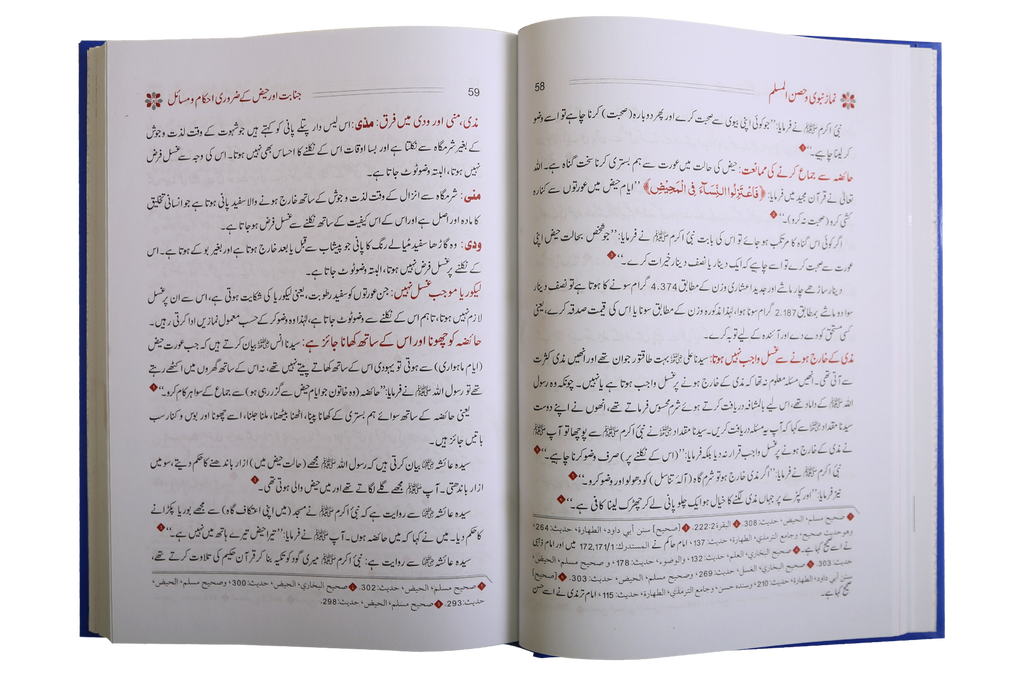 نماز نبوی و حصن المسلم
58
نبیٔ اکرم ﷺ نے فرمایا: ”جو کوئی اپنی بیوی سے صحبت کرے اور پھر دوبارہ (صحبت) کرنا چاہے تو اسے وضو
کر لینا چاہیے۔“
حائضہ سے جماع کرنے کی ممانعت: حیض کی حالت میں عورت سے ہم بستری کرنا سخت گناہ ہے۔ اللہ
تعالیٰ نے قرآن مجید میں فرمایا: ﴿فَاعْتَزِلُوا النِّسَآءَ فِي الْمَحِيضِ﴾ ”ایام حیض میں عورتوں سے کنارہ
کشی کرو (صحبت نہ کرو)۔“
اگر کوئی اس گناہ کا مرتکب ہو جائے تو اس کی بابت نبیٔ اکرم ﷺ نے فرمایا: ”جو شخص بحالت حیض اپنی
عورت سے صحبت کرے تو اسے چاہیے کہ ایک دینار یا نصف دینار خیرات کرے۔“
دینار ساڑھے چار ماشے اور جدید اعشاری وزن کے مطابق 4.374 گرام سونے کا ہوتا ہے تو نصف دینار
سوا دو ماشے بمطابق 2.187 گرام سونا ہوا، لہٰذا مذکورہ وزن کے مطابق سونا یا اس کی قیمت صدقہ کرے، یعنی
کسی مستحق کو دے دے اور آئندہ کے لیے توبہ کرے۔
مذی کے خارج ہونے سے غسل واجب نہیں ہوتا: سیدنا علی بہت طاقتور جوان تھے اور انھیں مذی کثرت
سے آتی تھی۔ انھیں مسئلہ معلوم نہ تھا کہ مذی کے خارج ہونے پر غسل واجب ہوتا ہے یا نہیں۔ چونکہ وہ رسول
اللہ ﷺ کے داماد تھے، اس لیے بالمشافہ دریافت کرتے ہوئے شرم محسوس فرماتے تھے، انھوں نے اپنے دوست
سیدنا مقداد سے کہا کہ آپ یہ مسئلہ دریافت کریں۔ سیدنا مقداد نے نبیٔ اکرم ﷺ سے پوچھا تو آپ ﷺ
نے مذی کے خارج ہونے پر غسل واجب قرار نہ دیا بلکہ فرمایا: ”(اس کے نکلنے پر) صرف وضو کرنا چاہیے۔“
نبیٔ اکرم ﷺ نے فرمایا: ”اگر مذی خارج ہو تو شرم گاہ (آلۂ تناسل) کو دھولو اور وضو کرو۔“
نیز فرمایا: ”اور کپڑے پر جہاں مذی لگنے کا خیال ہو ایک چلو پانی لے کر چھڑک لینا کافی ہے۔“
صحيح مسلم، الحيض، حديث: 308. البقرة 222:2. [صحيح] سنن أبي داود، الطهارة، حديث: 264،
وهو حديث صحيح، وجامع الترمذي، الطهارة، حديث: 137، امام حاکم نے المستدرك: 172,171/1 میں اور امام ذہبی
نے اسے صحیح کہا ہے۔ صحيح البخاري، العلم، حديث: 132، والوضوء، حديث: 178، وصحيح مسلم، الحيض،
حديث: 303. صحيح البخاري، الغسل، حديث: 269، وصحيح مسلم، الحيض، حديث: 303. [صحيح]
سنن أبي داود، الطهارة، حديث: 210، وسنده حسن، وجامع الترمذي، الطهارة، حديث: 115، امام ترمذی نے اسے حسن
صحیح کہا ہے۔
59
جنابت اور حیض کے ضروری احکام و مسائل
مذی، منی اور ودی میں فرق: مذی: اس لیس دار پتلے پانی کو کہتے ہیں جو شہوت کے وقت لذت و جوش
کے بغیر شرمگاہ سے نکلتا ہے اور بسا اوقات اس کے نکلنے کا احساس بھی نہیں ہوتا۔ اس کی وجہ سے غسل فرض
نہیں ہوتا، البتہ وضو ٹوٹ جاتا ہے۔
منی: شرمگاہ سے انزال کے وقت لذت و جوش کے ساتھ خارج ہونے والا سفید پانی ہوتا ہے جو انسانی تخلیق
کا مادہ اور اصل ہے اور اس کے اس کیفیت کے ساتھ نکلنے سے غسل فرض ہو جاتا ہے۔
ودی: وہ گاڑھا سفید مٹیالے رنگ کا پانی جو پیشاب سے قبل یا بعد خارج ہوتا ہے اور بغیر بو کے ہوتا ہے۔ اس
کے نکلنے پر غسل فرض نہیں ہوتا، البتہ وضو ٹوٹ جاتا ہے۔
لیکوریا موجب غسل نہیں: جن عورتوں کو سفید رطوبت، یعنی لیکوریا کی شکایت ہوتی ہے، اس سے ان پر غسل
لازم نہیں ہوتا، تاہم اس کے نکلنے سے وضو ٹوٹ جاتا ہے، لہٰذا وہ وضو کر کے حسب معمول نمازیں ادا کرتی رہیں۔
حائضہ کو چھونا اور اس کے ساتھ کھانا جائز ہے: سیدنا انس بیان کرتے ہیں کہ جب عورت حیض
(ایام ماہواری) سے ہوتی تو یہودی اس کے ساتھ کھاتے پیتے نہیں تھے، نہ اس کے ساتھ گھروں میں اکٹھے رہتے
تھے تو رسول اللہ ﷺ نے فرمایا: ”حائضہ (وہ خاتون جو ایام حیض سے گزر رہی ہو) سے جماع کے سوا ہر کام کرو۔“
یعنی حائضہ کے ساتھ سوائے ہم بستری کے کھانا پینا، اٹھنا بیٹھنا، ملنا جلنا، اسے چھونا اور بوس و کنار سب
باتیں جائز ہیں۔
سیدہ عائشہ بیان کرتی ہیں کہ رسول اللہ ﷺ مجھے (حالت حیض میں) ازار باندھنے کا حکم دیتے، سو میں
ازار باندھتی۔ آپ ﷺ مجھے گلے لگاتے تھے اور میں حیض والی ہوتی تھی۔
سیدہ عائشہ سے روایت ہے کہ نبیٔ اکرم ﷺ نے مسجد (میں اپنی اعتکاف گاہ) سے مجھے بوریا پکڑانے
کا حکم دیا۔ میں نے کہا کہ میں حائضہ ہوں۔ آپ ﷺ نے فرمایا: ”تیرا حیض تیرے ہاتھ میں نہیں ہے۔“
سیدہ عائشہ سے روایت ہے: نبیٔ اکرم ﷺ میری گود کو تکیہ بنا کر قرآن حکیم کی تلاوت کرتے تھے،
صحيح مسلم، الحيض، حديث: 302. صحيح البخاري، الحيض، حديث: 300، وصحيح مسلم، الحيض،
حديث: 293. صحيح مسلم، الحيض، حديث: 298.